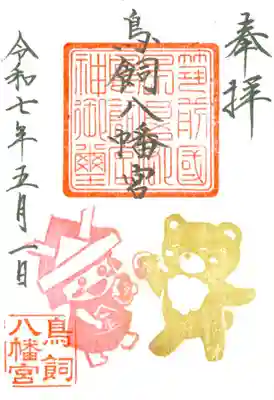 奉拝
鳥飼八幡宮
令和七年五月一日
筑前國
神御璽
鳥飼
八幡宮